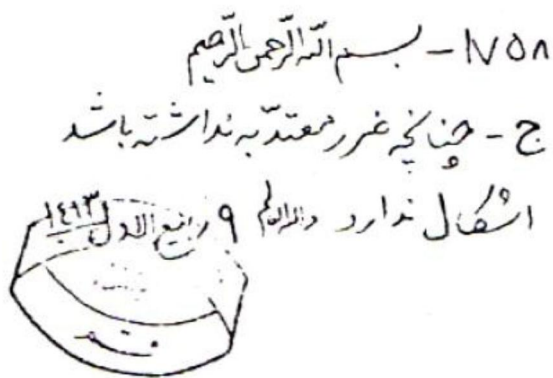 ۱۷۵۸ - بسم الله الرّحمن الرّحیم
ج - چنانچه ضرر معتدّ به نداشته باشد
اشکال ندارد والله العالم ۹ ربیع الاول ۱۴۱۳